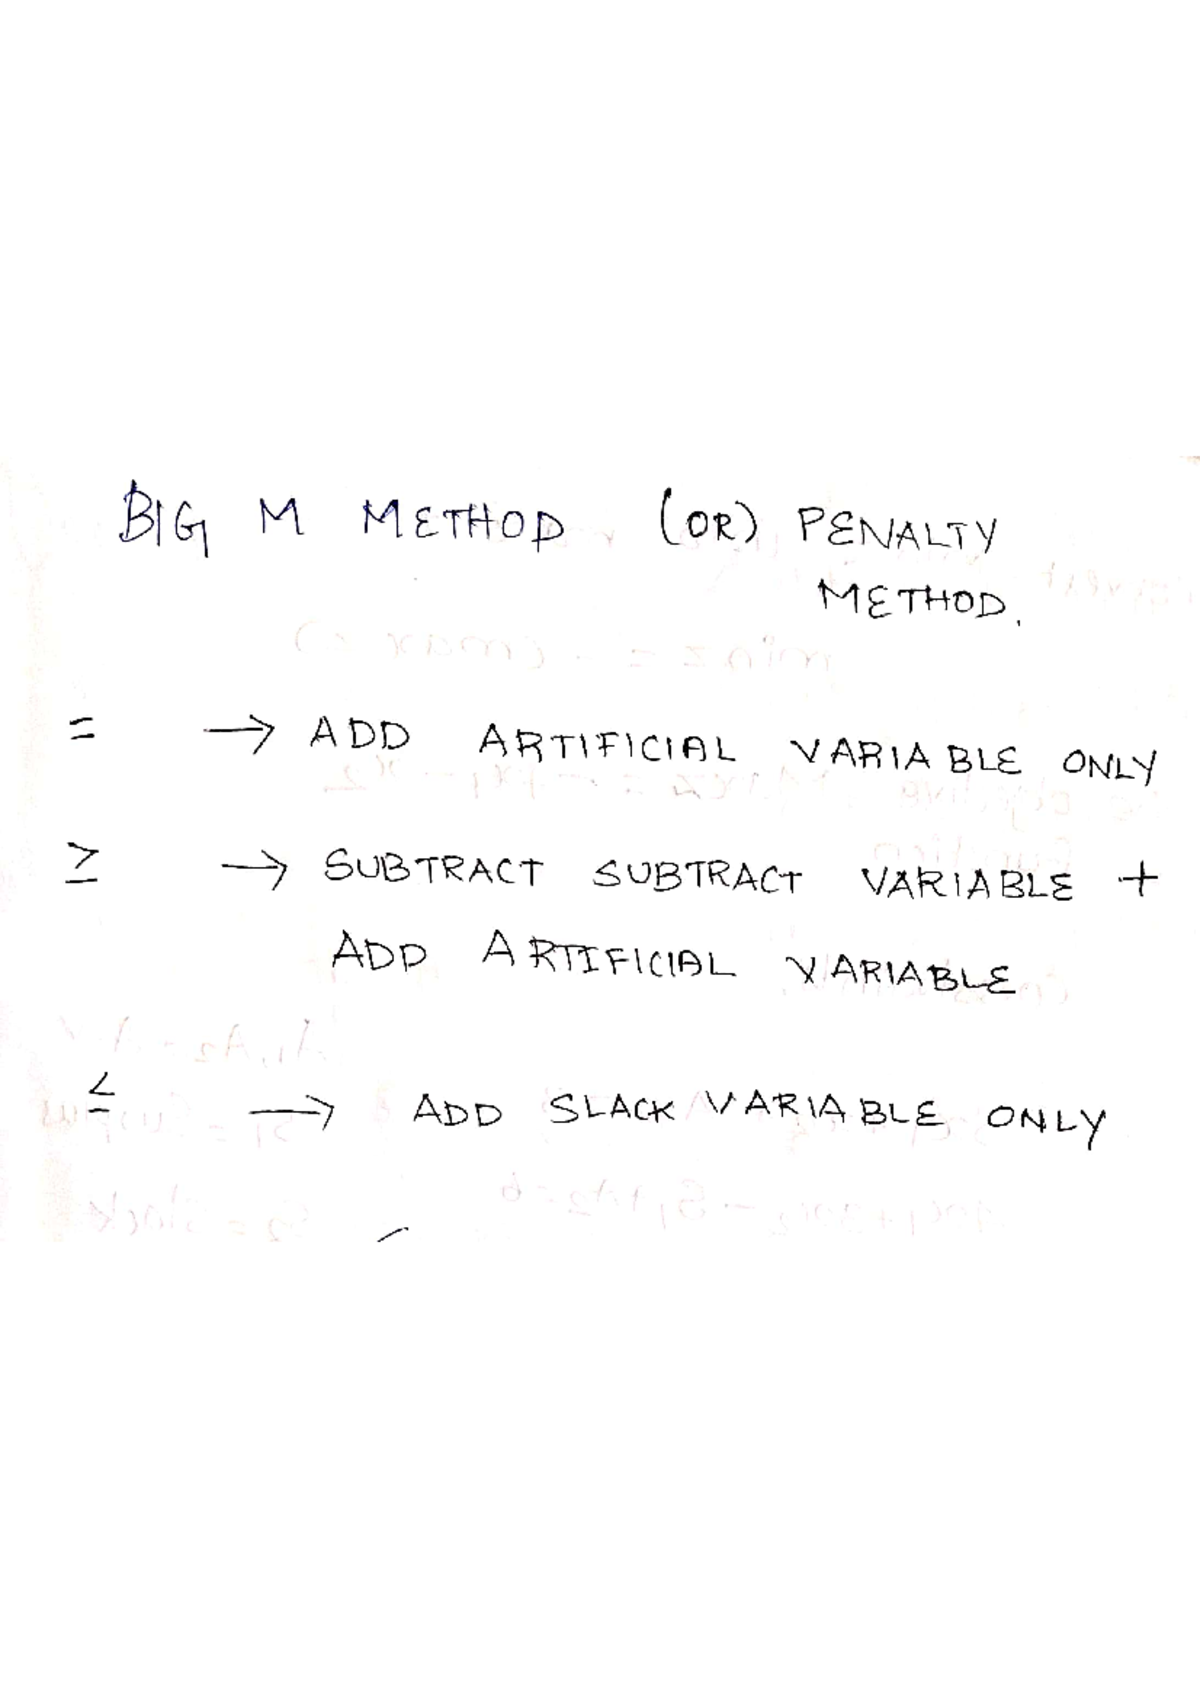 BIG M METHOD (OR) PENALTY
METHOD.
= → ADD ARTIFICIAL VARIABLE ONLY
≥ → SUBTRACT SUBTRACT VARIABLE +
ADD ARTIFICIAL VARIABLE
≤ → ADD SLACK VARIABLE ONLY